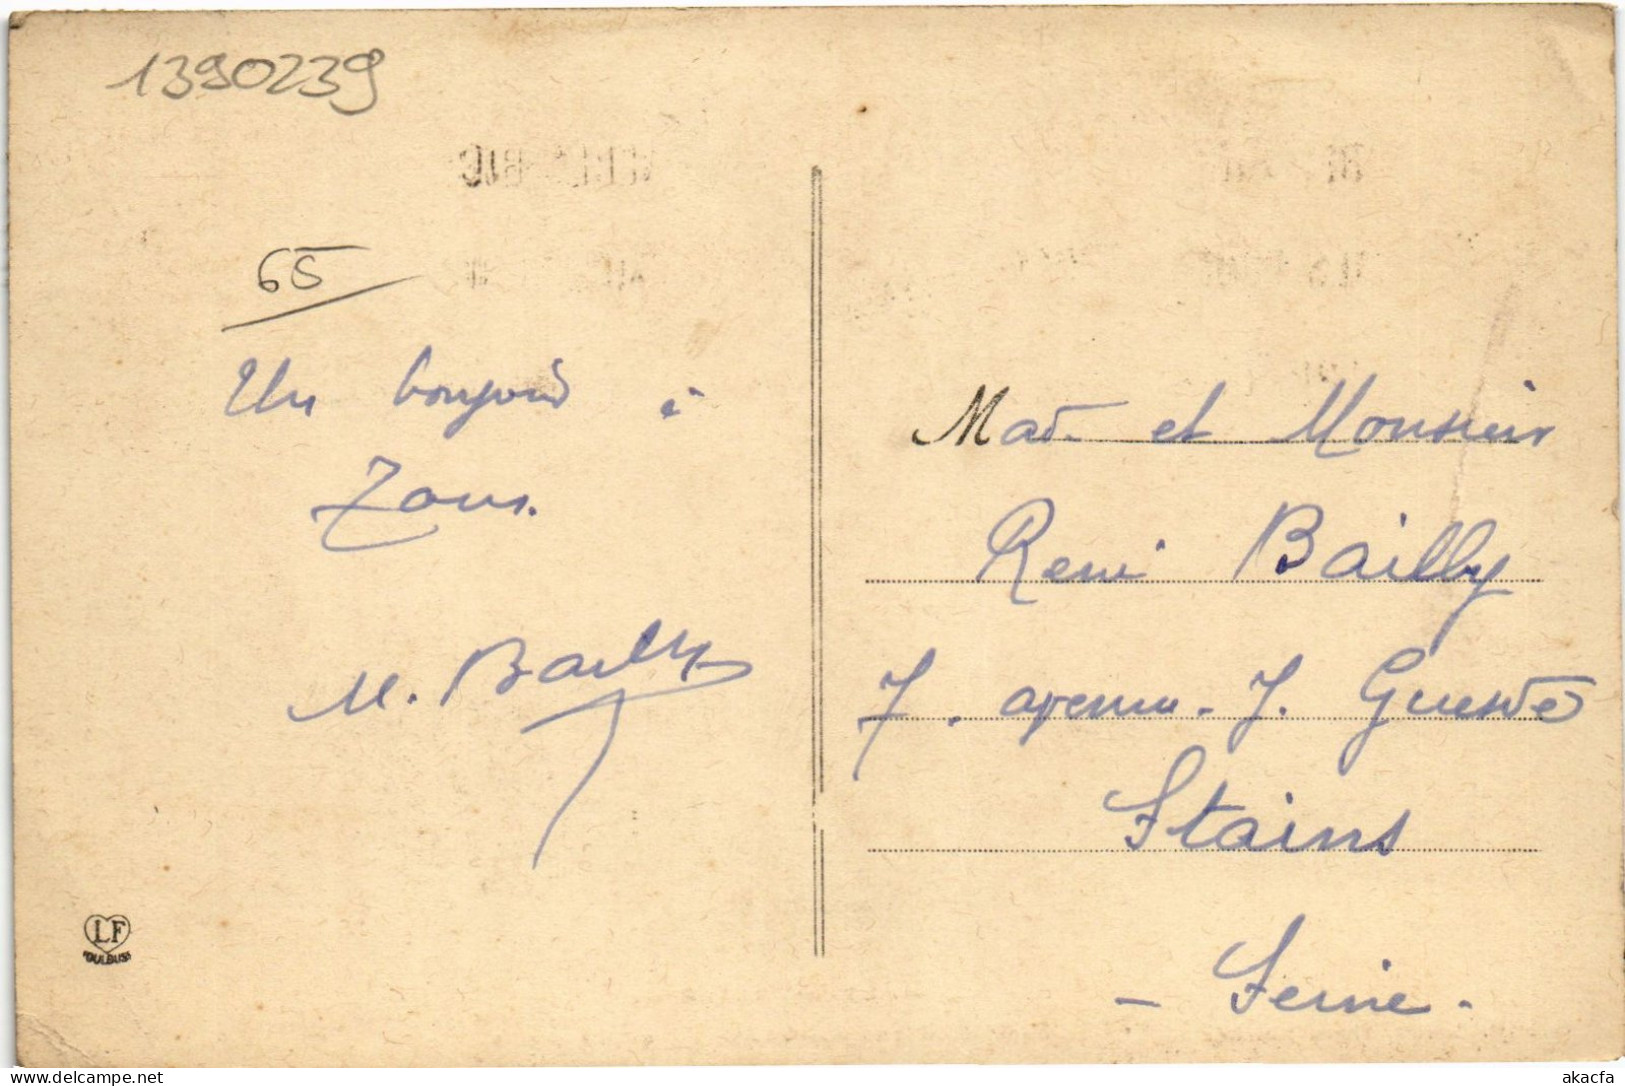 1390239
65
Un bonjour à
Tous.
M. Bailly
LF
TOULOUSE
Mad. et Monsieur
René Bailly
7. avenue. J. Guesde
Stains
- Seine -
akacfa